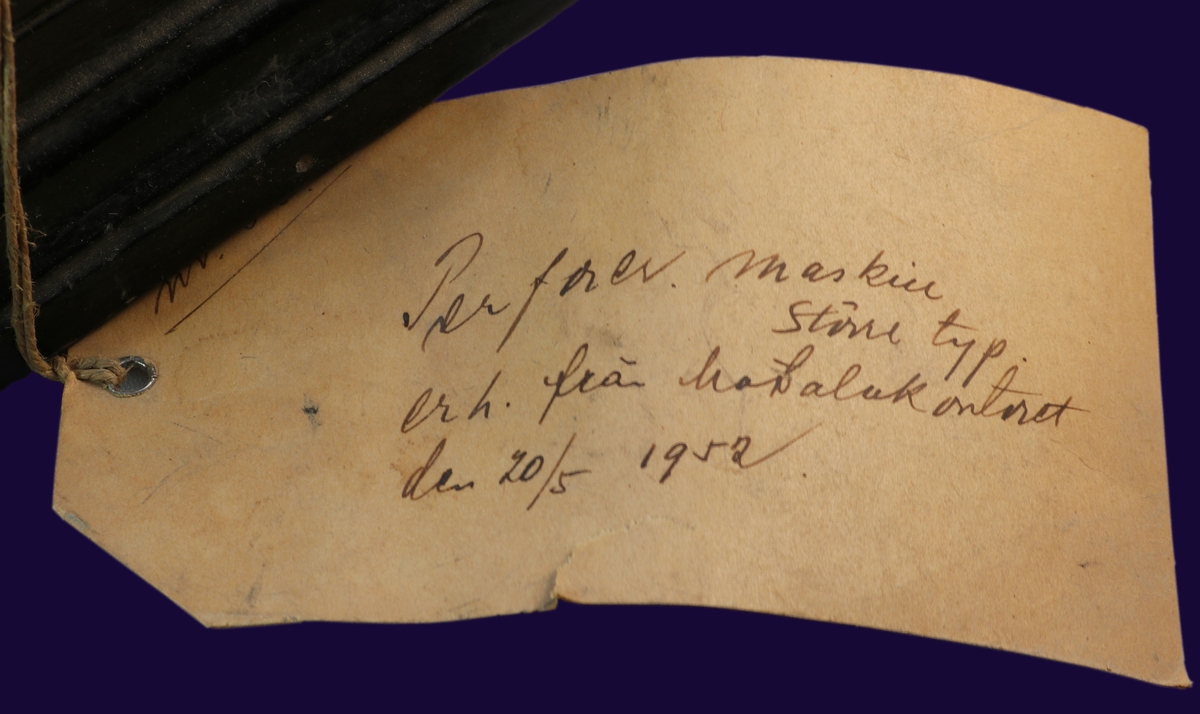 nr.
Perforer. maskin
Större typ.
erh. från
den 20/5 1952